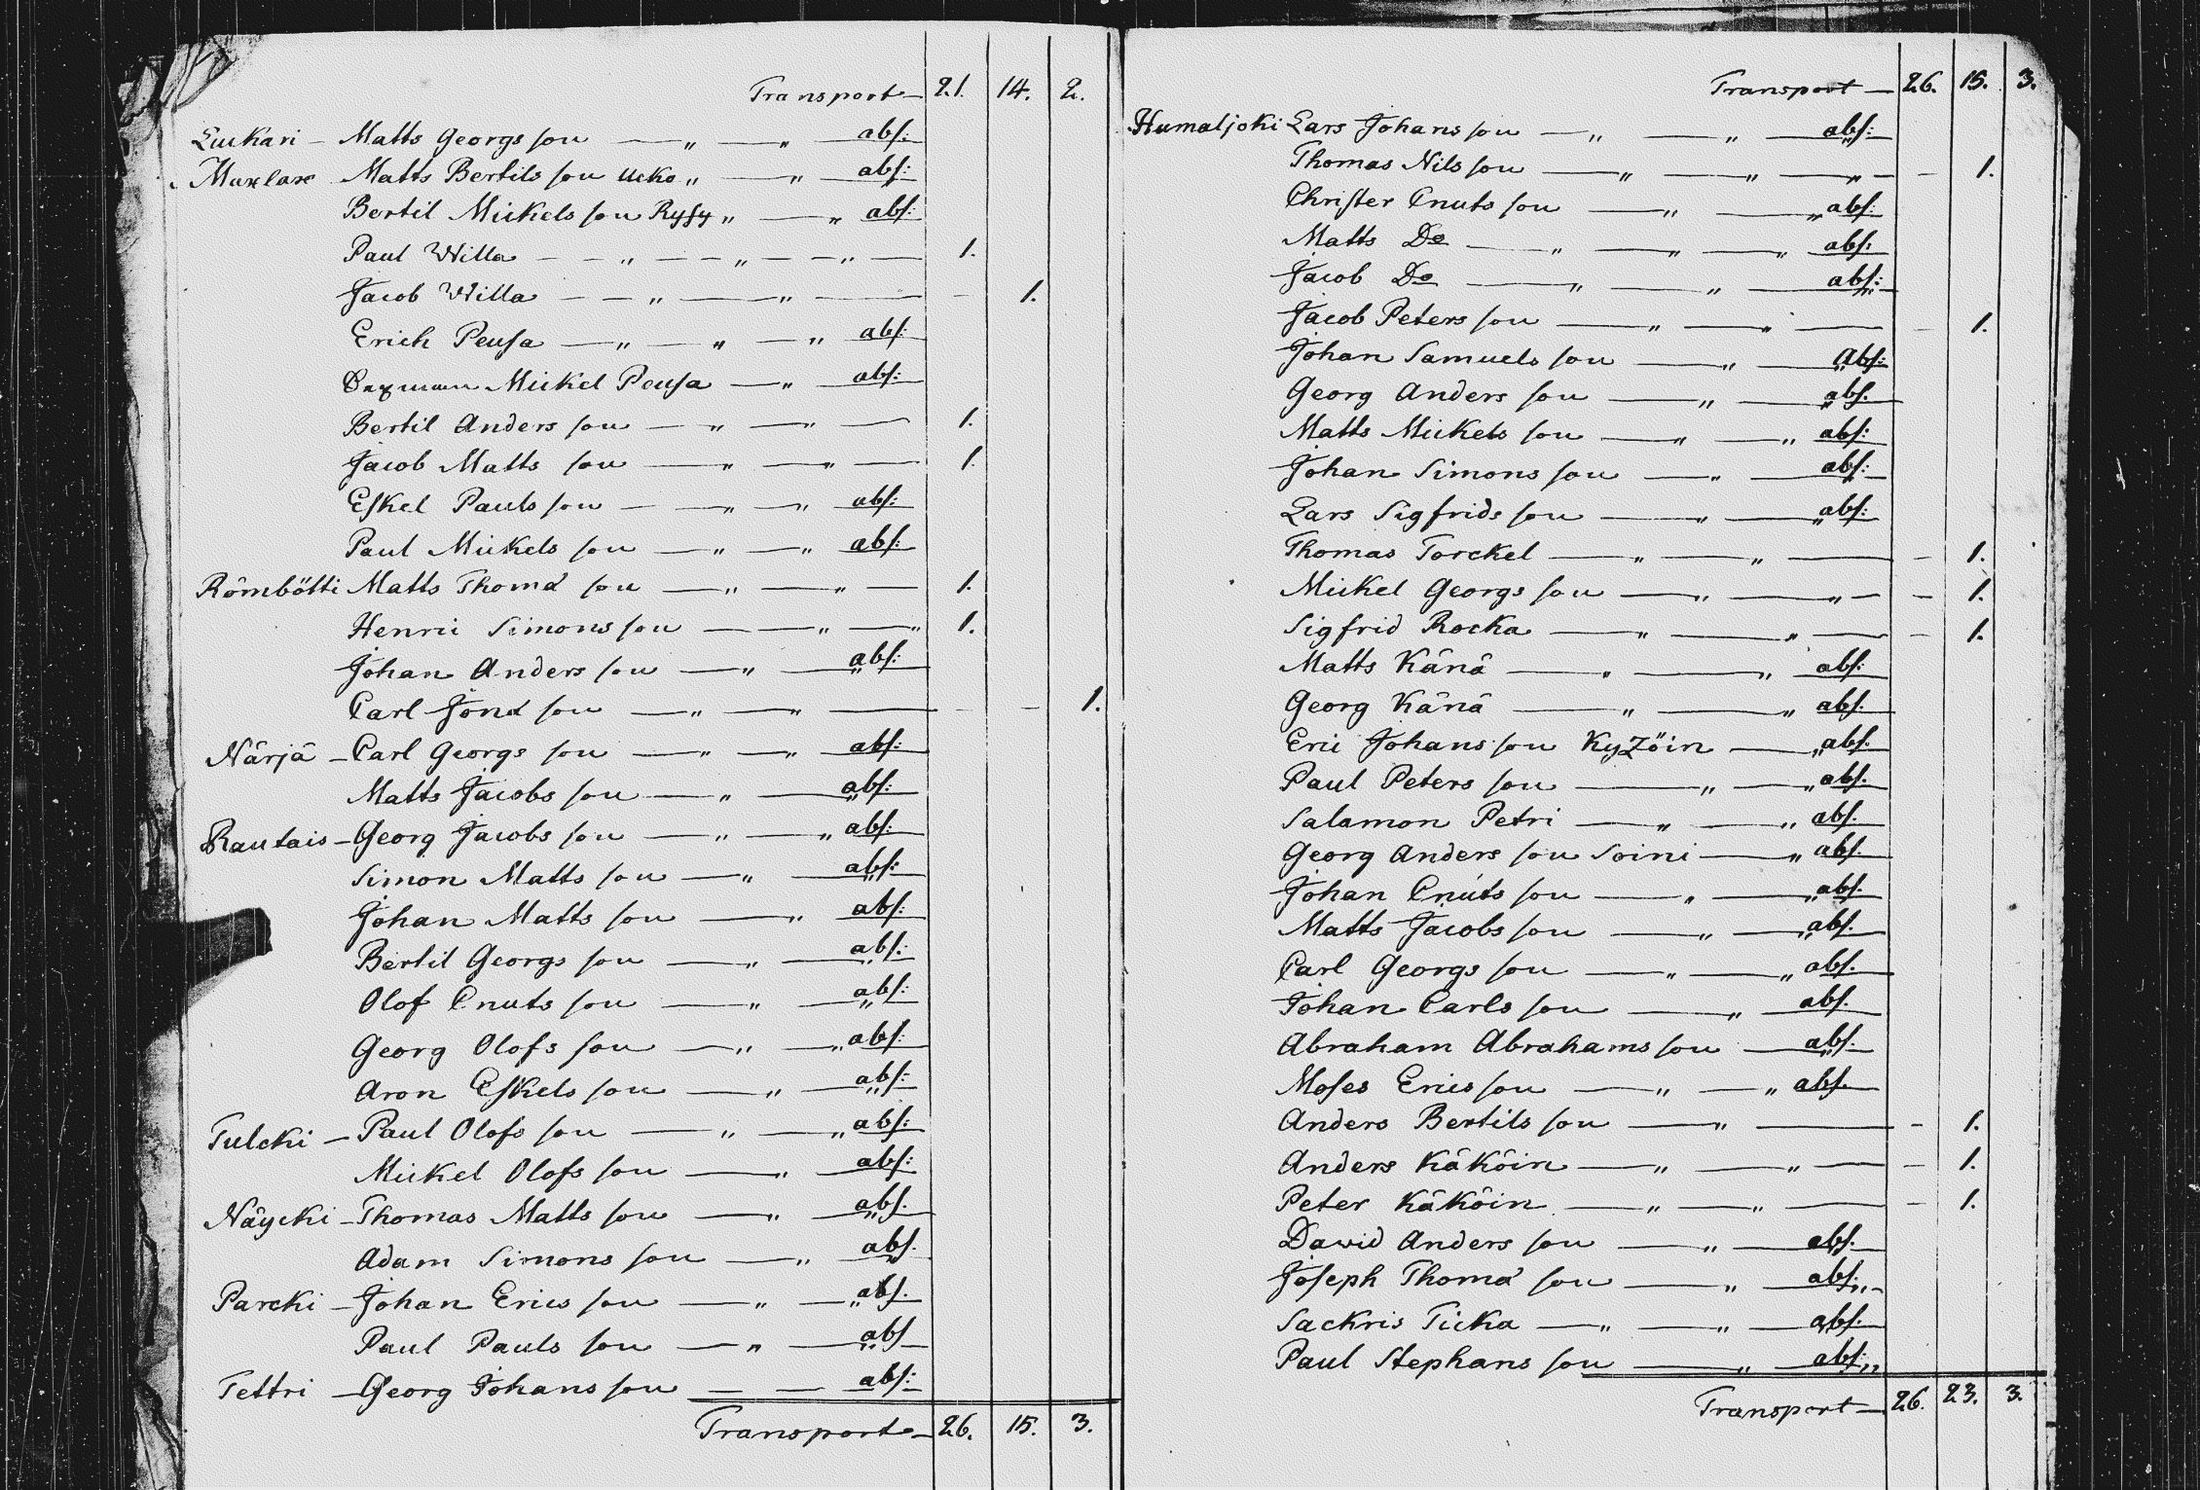 Transport — 21. 14. 2.
Luukari — Matts Georgs son — „ — „ — abs:
Muxlax Matts Bertils son Ucko „ — „ abs:
Bertil Mickels son Ryssy „ — „ abs:
Paul Willa — — „ — — „ — — „ — 1.
Jacob Willa — — „ — „ — 1.
Erich Peusa — „ — „ — „ abs:
Mickel Peusa — „ — abs:
Bertil Anders son — „ — „ — 1.
Jacob Matts son — „ — „ — 1.
Eskel Pauls son — „ — „ abs:
Paul Mickels son — „ — „ abs:
Römbötti Matts Thomæ son — „ — „ — 1.
Henric Simons son — „ — „ 1.
Johan Anders son — „ — abs:
Carl Jonæ son — „ — „ — 1.
Närjä — Carl Georgs son — „ — „ abs:
Matts Jacobs son — „ — abs:
Rautais — Georg Jacobs son — „ — „ abs:
Simon Matts son — „ — abs:
Johan Matts son — „ — abs:
Bertil Georgs son — „ — abs:
Olof Cnuts son — „ — abs:
Georg Olofs son — „ — „ abs:
Aron Eskels son — „ — abs:
Tulcki — Paul Olofs son — „ — „ abs:
Mickel Olofs son — „ — abs:
Näycki — Thomas Matts son — „ — abs.
Adam Simons son — „ — abs.
Parcki — Johan Erics son — „ — „ abs.
Paul Pauls son — „ — abs
Tettri — Georg Johans son — — abs:
Transport — 26. 15. 3.
Transport — 26. 15. 3.
Humaljoki Lars Johans son — „ — „ — abs:
Thomas Nils son — „ — „ — „ — 1.
Christer Cnuts son — „ — „ abs:
Matts Do — „ — „ — „ abs:
Jacob Do — „ — „ — abs:
Jacob Peters son — „ — „ — 1.
Johan Samuels son — „ — Abs:
Georg Anders son — „ — abs.
Matts Mickels son — „ — „ abs:
Johan Simons son — „ — abs:
Lars Sigfrids son — „ — „ abs:
Thomas Torckel — „ — „ — 1.
Mickel Georgs son — „ — „ — 1.
Sigfrid Rocka — „ — „ — 1.
Matts Känä — „ — „ abs:
Georg Känä — „ — „ abs.
Eric Johans son Kyzöin — „ abs.
Paul Peters son — „ — „ abs.
Salamon Petri — „ — „ abs.
Georg Anders son Soini — „ abs.
Johan Cnuts son — „ — „ abs.
Matts Jacobs son — „ — „ abs.
Carl Georgs son — „ — „ abs.
Johan Carls son — „ — abs.
Abraham Abrahams son — abs:
Moses Erics son — „ — „ abs.
Anders Bertils son — „ — 1.
Anders Käköin — „ — „ — 1.
Peter Käköin — „ — „ — 1.
Dawid Anders son — „ — abs.
Joseph Thomæ son — „ — abs: „ -
Sackris Ticka — „ — „ — abs.
Paul Stephans son — „ — abs: „
Transport — 26. 23. 3.